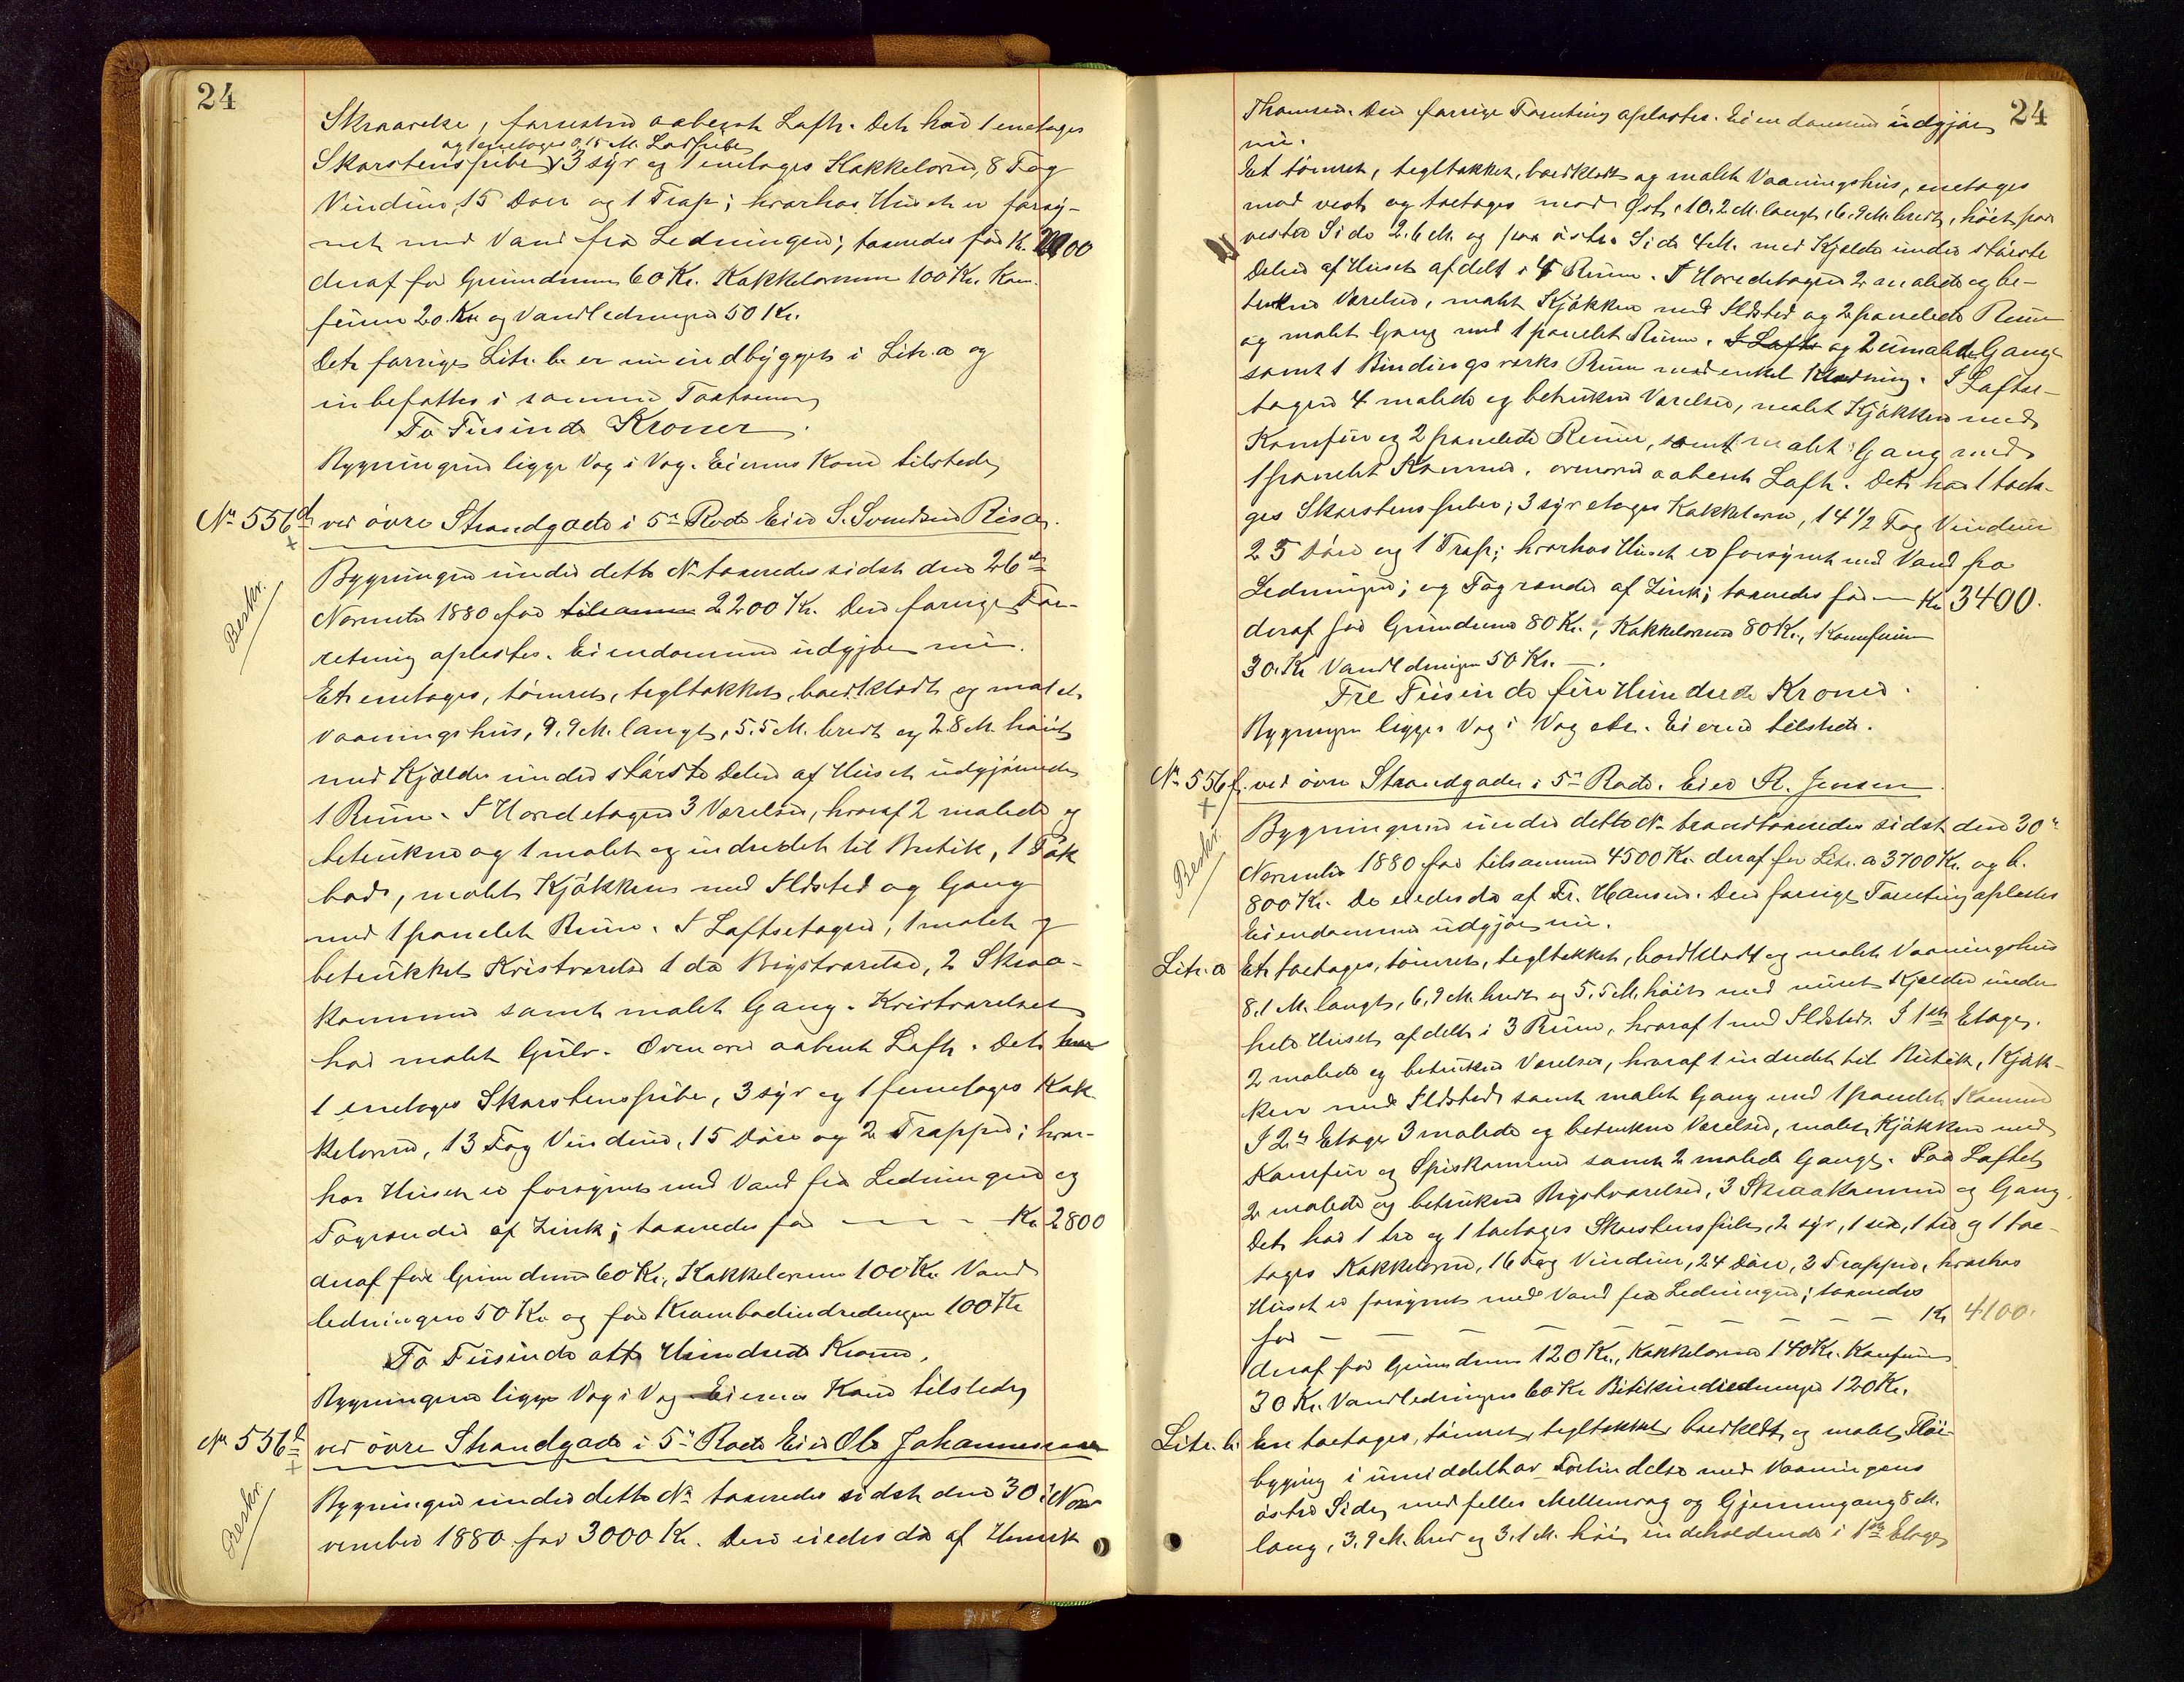 24
Skraarekke, forresten aabent Loft. Det har 1 enetages
og 1 enetages 0,15 M. Lodpibe
Skorstenspibe 3 syv og 1 enetages Kakkelovne, 8 Fag
Vinduer, 15 Döre og 1 Trap; hvorhos Huset er forsy-
net med Vand fra Ledningen; taxeredes for Kr. 2000
deraf for Grundmur 60 Kr. Kakkelovnene 100 Kr. Kom-
furen 20 Kr. og Vandledningen 50 Kr.
Det forrige Litr. b. er nu indbygget i Litr. a og
indbefattes i samme Taxtsum
To Tusinde Kroner.
Bygningen ligger Væg i Væg. Eierens Kone tilstede
No 556 ved övre Strandgade i 5te Rode Eier S. Svendsen Risa.
Beskr.
Bygningen under dette No taxeredes sidst den 26de
November 1880 for tilsammen 2200 Kr. Den forrige For-
retning oplæstes. Eiendommen udgjör nu.
Et enetages, tömret, tegltækket, bordklædt og malet
Vaaningshus, 9.9 M. langt, 5.5 M. bredt og 2.8 M höit
med Kjælder under störste Delen af Huset udgjörende
1 Rum. I Hovedetagen 3 Værelser, hvoraf 2 malede og
betrukne og 1 malet og indredet til Butik, 1 Pak
bod, malet Kjökken med Ildsted og Gang
med 1 panelet Rum. I Loftsetagen, 1 malet og
betrukket Kvistværelse 1 do Bigstværelse, 2 Skraa-
kammere samt malet Gang. Kvistværelset
har malet Gulv. Ovenover aabent Loft. Det har
1 enetages Skorstenspibe, 3 syv og 1 femetages Kak-
kelovne, 13 Fag Vinduer, 15 Döre og 2 Trapper; hvor-
hos Huset er forsynet med Vand fra Ledningen og
Tagrender af Zink; taxeredes for — — — Kr 2800
deraf for Grundmur 60 Kr., Kakkelovnene 100 Kr. Vand
ledningen 50 Kr. og for Krambodindredningen 100 Kr
To Tusinde otte Hundrede Kroner.
Bygningen ligger Væg i Væg Eierens Kone tilstede
No 556 ved övre Strandgade i 5te Rode Eier Ole Johannessen
Beskr.
Bygningen under dette No taxeredes sidst den 30 i Nov-
vember 1880 for 3000 Kr. Den eiedes da af Henrik
24
Thomsen. Den forrige Forretning oplæstes. Eiendommen udgjör
nu.
Et tömret, tegltækket, bordklædt og malet Vaaningshus, enetages
mod vest og toetages mod Öst, 10.2 M. langt, 6.9 M. bredt, höit paa
vestre Side 2.6 M. og paa östre Side 4 M. med Kjælder under störste
Delen af Huset afdelt i 4 Rum. I Hovedetagen 2 malede og be-
trukne Værelser, malet Kjökken med Ildsted og 2 panelede Rum
og malet Gang med 1 panelet Rum. I Loftet og 2 umalede Gange
samt 1 Bindingsværks Rum med enkel Klædning. I Loftse-
tagen 4 malede og betrukne Værelser, malet Kjökken med
Komfur og 2 panelede Rum, samt malet Gang med
1 panelet Kammer. ovenover aabent Loft. Det har 1 toeta-
ges Skorstenspiber; 3 syv etages Kakkelovne, 14 1/2 Fag Vinduer
25 Döre og 1 Trap; hvorhos Huset er forsynet med Vand fra
Ledningen; og Tagrender af Zink; taxeredes for — Kr 3400.
deraf for Grundmur 80 Kr., Kakkelovne 80 Kr., Komfuren
30. Kr Vandledningen 50 Kr. —.
Tre Tusinde fire Hundrede Kroner.
Bygningen ligger Væg i Væg etc. Eieren tilstede.
No 556 f. ved övre Strandgaden i 5te Rode. Eier R. Jensen
Beskr.
Bygningerne under dette No brandtaxeredes sidst den 30te
November 1880 for tilsammen 4500 Kr. deraf for Litr. a 3700 Kr. og b.
800 Kr. De eiedes da af Fr. Hansen. Den forrige Forretning oplæstes
Eiendommen udgjör nu.
Litr. a Et toetages, tömret, tegltækket, bordklædt og malet Vaaningshus
8.1 M. langt, 6.9 M. bredt og 5.5 M. höit med muret Kjælder under
hele Huset afdelt i 3 Rum, hvoraf 1 med Ildsted. I 1ste Etage.
2 malede og betrukne Værelser, hvoraf 1 indredet til Butik, Kjök-
ken med Ildsted samt malet Gang med 1 panelet Kammer
I 2den Etage 3 malede og betrukne Værelser, malet Kjökken med
Komfur og Spiskammer samt 2 malede Gange. Paa Loftet
2 malede og betrukne Bigstværelser, 3 Skraakammere og Gang.
Det har 1 tre og 1 toetages Skorstenspibe, 2 syv, 1 sex, 1 tre og 1 toe-
tages Kakkelovne, 16 Fag Vinduer, 24 Döre, 3 Trapper, hvorhos
Huset er forsynet med Vand fra Ledningen; taxeredes
for — — — — — — — — — Kr 4100.
deraf for Grundmur 120 Kr., Kakkelovne 140 Kr. Komfuren
30 Kr. Vandledningen 60 Kr Butikindredningen 120 Kr.
Litr. b. En toetages, tömret, tegltækket, bordklædt, og malet Flöi-
bygning i umiddelbar Forbindelse med Vaaningens
östre Side, med felles Mellemvæg og Gjennemgang 8 M.
lang, 3.9 M. bred og 3.1 M. höi indeholdende i 1ste Etage